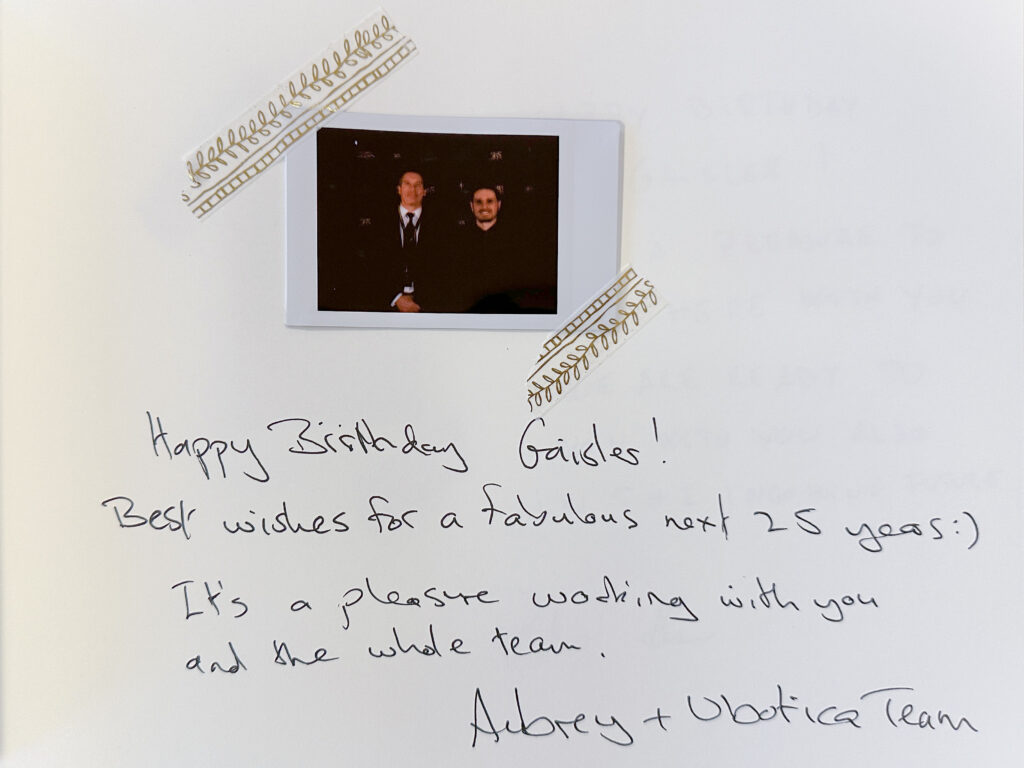 Happy Birthday Gaisler!
Best wishes for a fabulous next 25 years:)
It's a pleasure working with you
and the whole team.
Aubrey + Ubotica Team